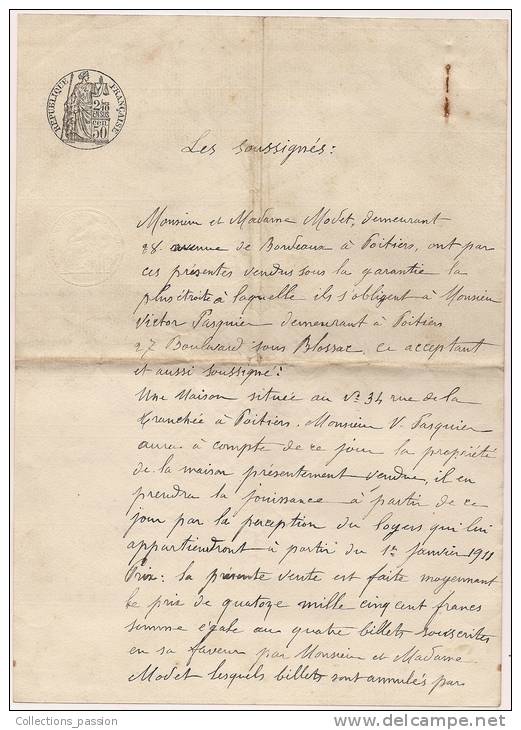 RÉPUBLIQUE FRANÇAISE
2/10
EN SUS
cen
50
Les soussignés:
Monsieur et Madame Modet, demeurant
28 avenue de Bordeaux à Poitiers, ont par
ces présentes vendus sous la garantie la
plus étroite à laquelle ils s'obligent à Monsieur
Victor Pasquier demeurant à Poitiers
27 Boulevard sous Blossac, ce acceptant
et aussi soussigné:
Une Maison située au No 34 rue de la
tranchée à Poitiers. Monsieur V. Pasquier
aura à compte de ce jour la propriété
de la maison présentement vendue, il en
prendra la jouissance à partir de ce
jour par la perception du loyers qui lui
appartiendront à partir du 1er Janvier 1911
Prix: la présente vente est faite moyennant
le prix de quatoze mille cinq cent francs
somme égale au quatre billets souscrites
en sa faveur par Monsieur et Madame
Modet lesquels billets sont annulés par
Collections_passion
delcampe.net